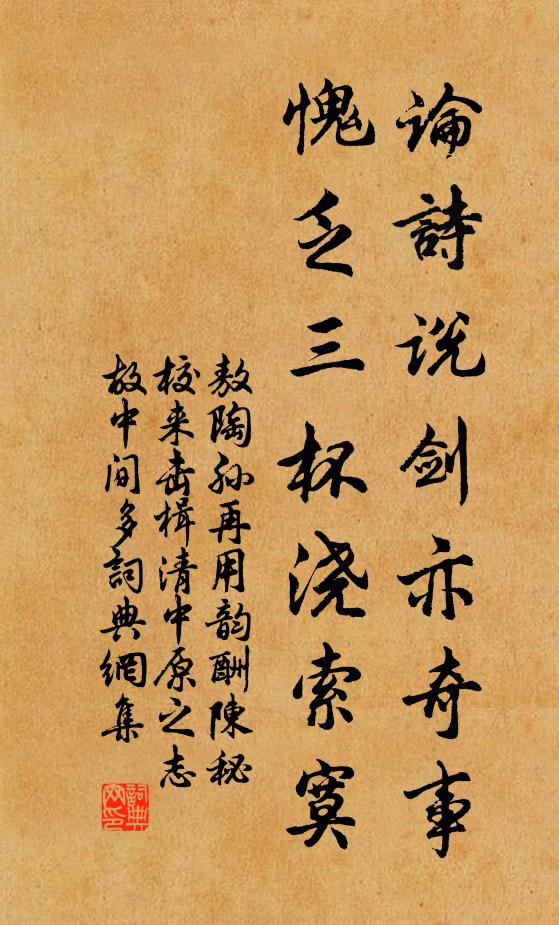 論詩说剑亦奇事
愧乏三杯浇索寞
敖陶孙再用韵酬陳秘
校来击楫清中原之志
故中间多詞典網集
詞典
网印